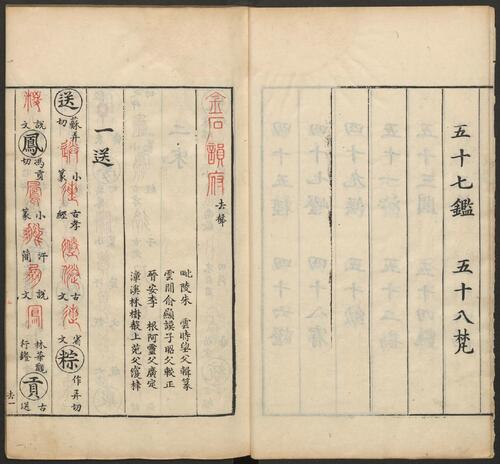 五十七鑑　五十八梵
金石韻府 去聲
毗陵朱　雲時望父輯篆
雲間俞顯謨子昭父較正
晉安李　根阿靈父廣定
漳溪林樹　上苑父　梓
一送
送 蘇弄切 小篆 古孝經 古文 省文 粽 作弄切
說文 鳳 馮貢切 小篆 汗簡 說文 林華觀行鐙 貢 古送
去一